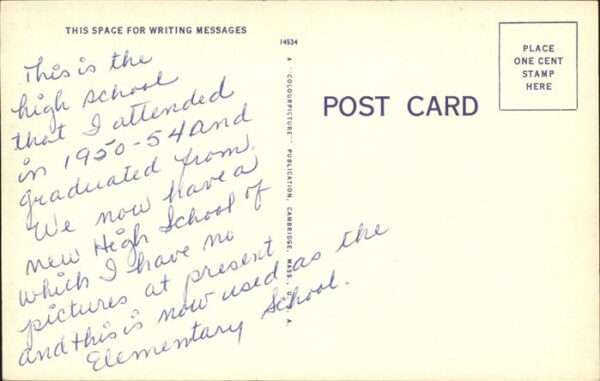 THIS SPACE FOR WRITING MESSAGES
This is the
high school
that I attended
in 1950-54 and
graduated from.
We now have a
new High School of
which I have no
pictures at present
and this is now used as the
Elementary School.
14534
A "COLOURPICTURE" PUBLICATION, CAMBRIDGE, MASS., U. S. A.
POST CARD
PLACE
ONE CENT
STAMP
HERE